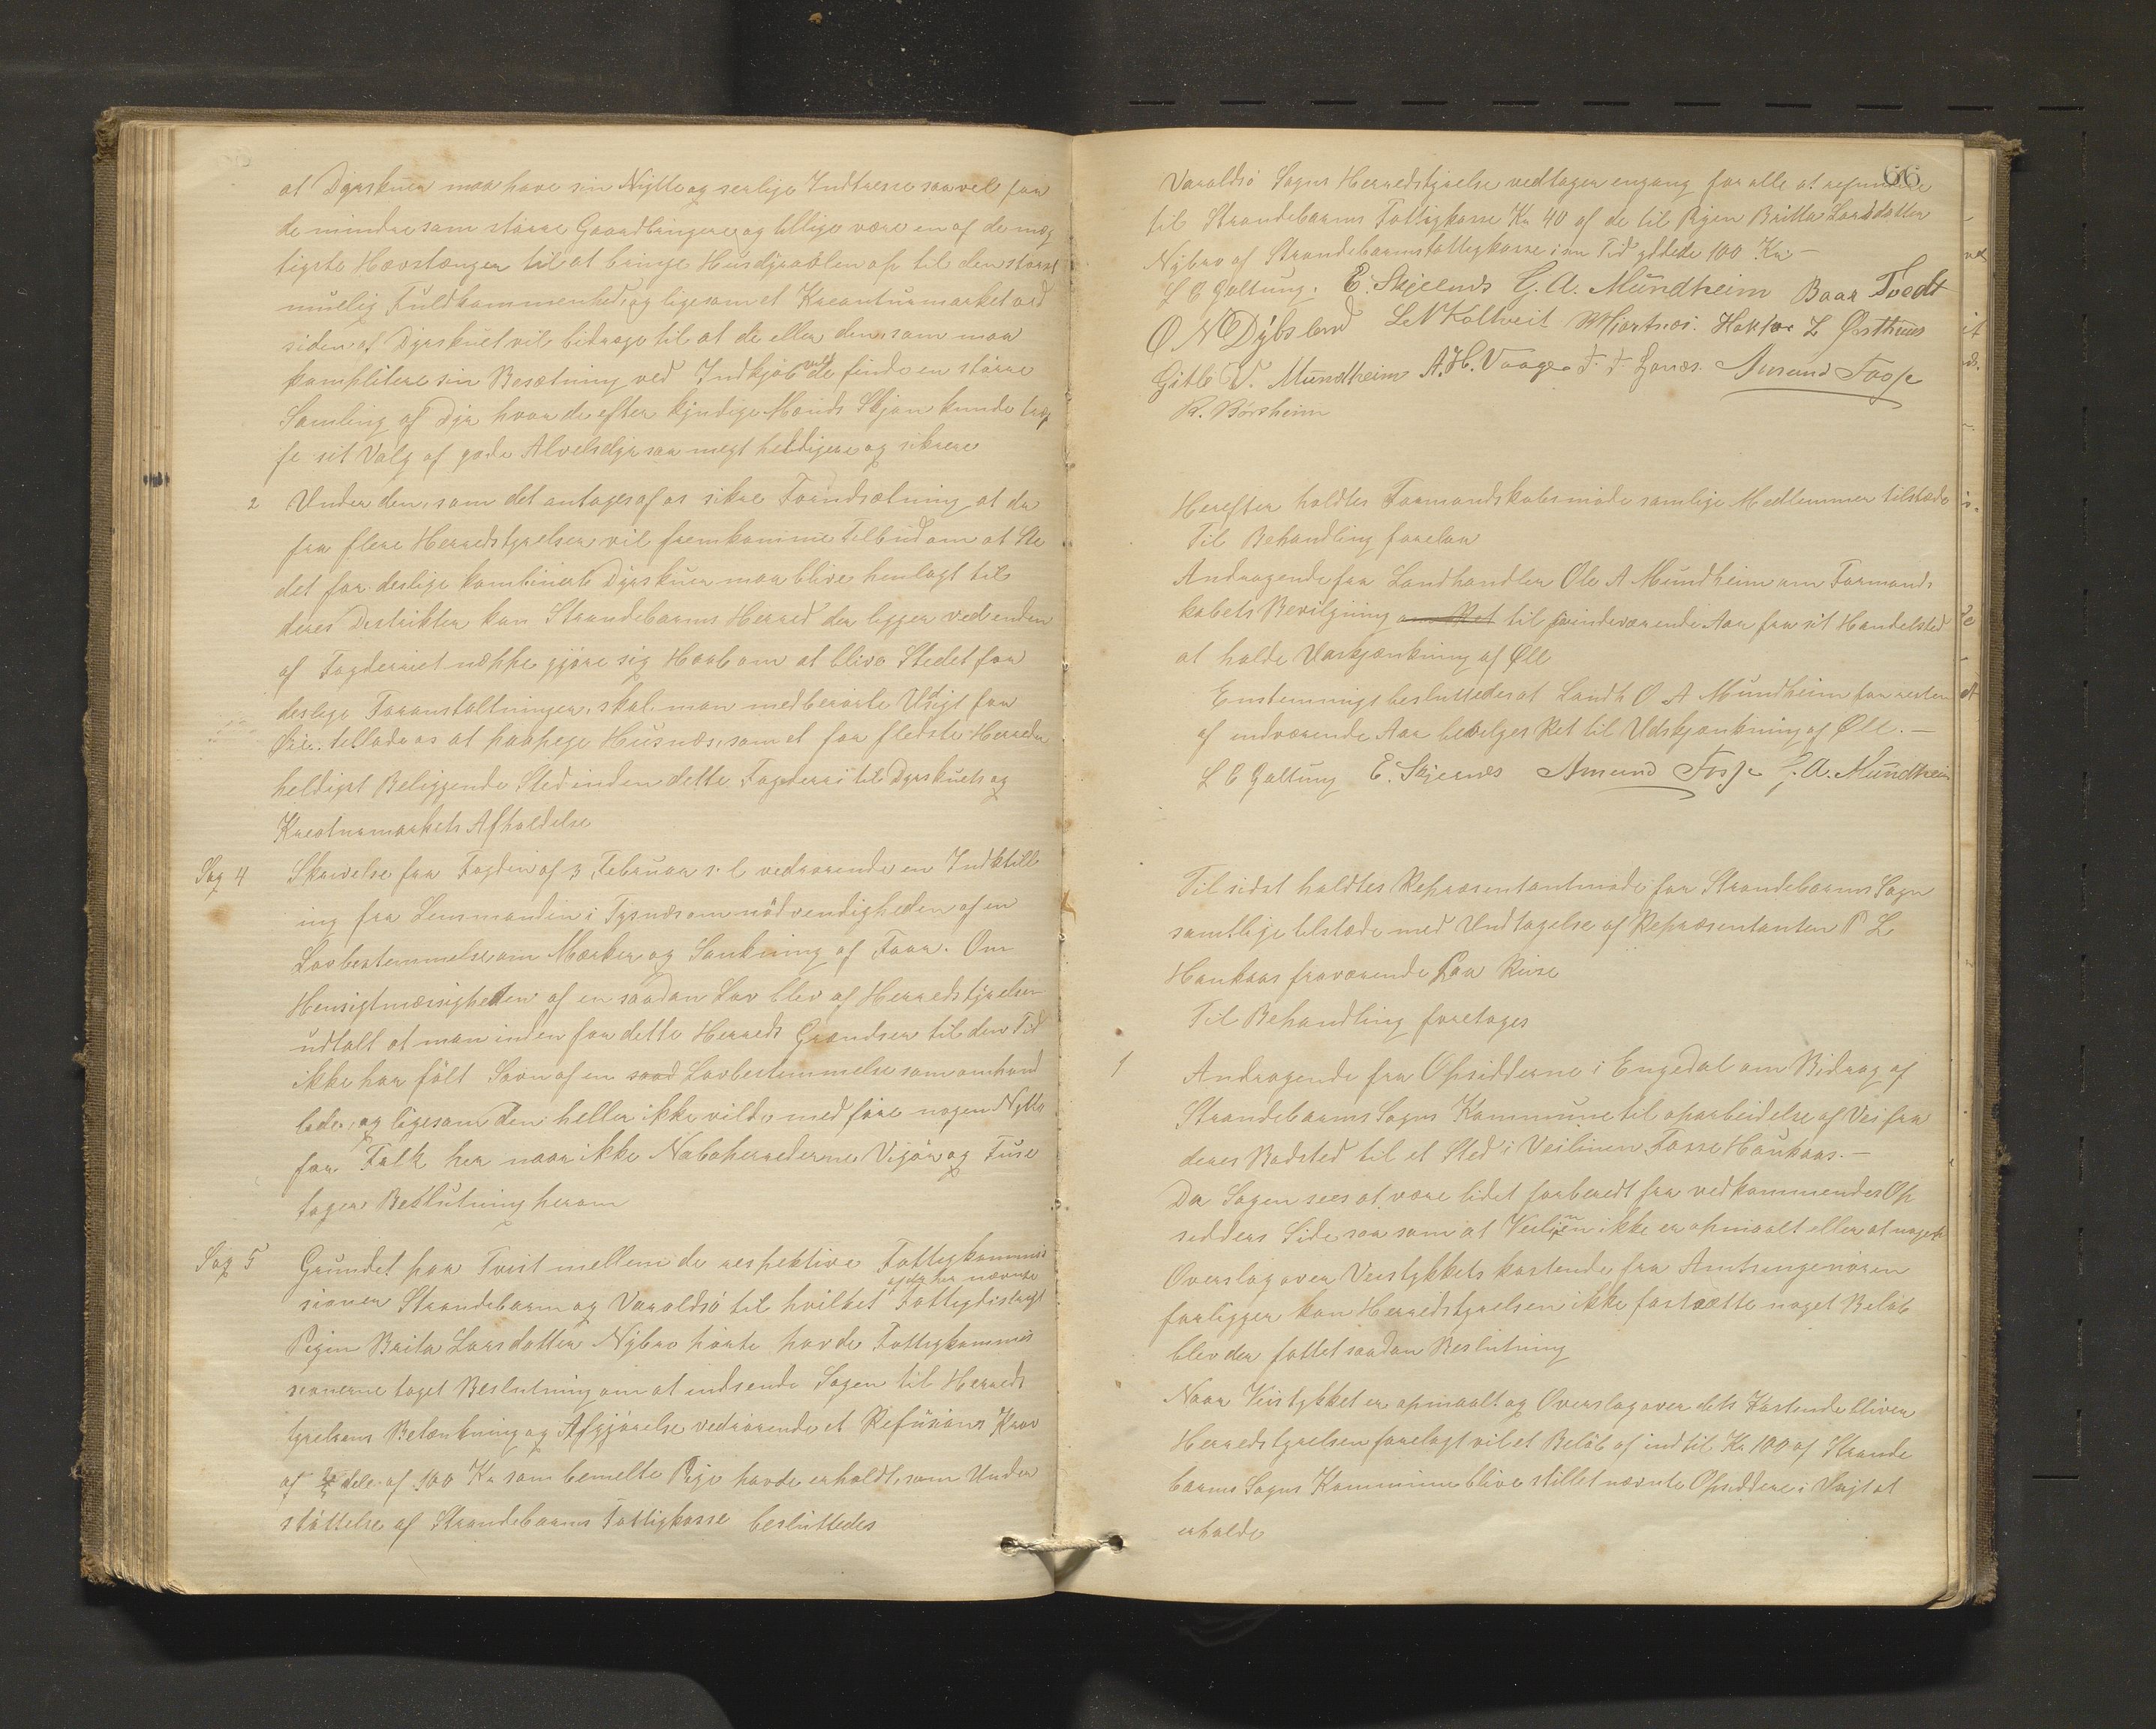 at Dyrskuer maa have sin Nytte og serlige Indtresse saavel for
de mindre som større Gaardbrugere, og tillige være en af de mæg
tigste Hævstænger til at bringe Husdyraølen op til den størst
muelig Fuldkommenhed, og ligesom et Kreaturmarket ved
siden af Dyrskuet vil bidrage til at de eller den, som maa
komplitere sin Besætning ved Indkjøb vilde finde en større
Samling af Dyr hvor de efter kyndige Mænds Skjøn kunde træf
fe sit Valg af gode Alvelsdyr saa megt heldigere og sikrere
2 Under den, som det antages af os sikre Forudsætning at der
fra flere Herredstyrelser vil fremkomme Tilbud om at Ste
det for deslige kombinerte Dyrskuer maa blive henlagt til
deres Destrikter kan Strandebarms Herred der ligger ved enden
af Fogderiet næppe gjøre sig Haab om at blive Stedet for
deslige Foranstaltninger, skal man med berørte Udsigt for
Øie tillade os at paapege Husnæs, som et for fledste Herreder
heldigst Beliggende Sted inden dette Fogderri til Dyrskuets og
Kreaturmarkets Afholdelse
Sag 4 Skrivelse fra Fogden af 3 Februar s. l vedrørende en Indstill
ing fra Lensmanden i Tysnæs om nødvendigheden af en
Lovbestemmelse om Mærker og Sankning af Faar. Om
Hensigtmæsigheden af en saadan Lov blev af Herredstyrelsen
udtalt at man inden for dette Herreds Grændser til den Tid
ikke har følt Savn af en saad Lovbestemmelse som omhand
lede, og ligesom den heller ikke vilde medføre nogen Nytte
for Folk her naar ikke Naboherrederne Vigør og Fuse
tager Beslutning herom
Sag 5 Grundet paa Tvist mellem de respektive Fattigkommis
sioner Strandebarm og Varaldsø til hvilket af de her nævnte Fattigdistrigt
Pigen Brita Larsdotter Nybro hørte havde Fattigkommis
sionerne taget Beslutning om at indsende Sagen til Herreds
tyrelsens Betænkning og Afgjørelse vedrørende et Refusions Krav
af dele af 100 Kr som bemelte Pige havde erholdt, som Under
støttelse af Strandebarms Fattigkasse besluttedes
66
Varaldsø Sogns Herredstyrelse vedtager engang for alle at refundere
til Strandebarms Fattigkasse Kr 40 af de til Pigen Britta Larsdotter
Nybro af Strandebarms fattigkasse i sin Tid ydtede 100 Kr –
L C Galtung. E. Skjelnes G. A. Mundheim Baar Tvedt
O N Dybsland L N Koltveit M Hjortnæs. Haktor L Østhuus
Gitle V. Mundheim A. H. Vaage F. F Lonæs. Amund Fosse
R. Børsheim
Herefter holdtes Formandskabsmøde samlige Medlemmer tilstæde
Til Behandling forelaa
Andragende fra Landhandler Ole A Mundheim om Formand,
kabets Bevilgning om Ret til for indeværende Aar fra sit Handelsted
at holde Udskjænkning af Øll
Enstemmigt besluttedes at Landh O A Mundheim for resten
af indværende Aar bevilges Ret til Udskjænkning af Øll. –
L C Galtung E. Skjelnes Amund Fosse G. A. Mundheim
Til sidst holdtes Repræsentantmøde for Strandebarms Sogn
samtlige tilstæde med Undtagelse af Repræsentanten P L
Haukaas fraværende paa Reise
Til Behandling foretages
1 Andragende fra Opsidderne i Engedal om Bidrag af
Strandebarms Sogns Kommune til oparbeidelse af Vei fra
deres Bosted til et Sted i Veilinien Fosse Haukaas. –
Da Sagen sees at være lidet forberedt fra vedkommendes Op
sidders Side saa som at Veilinien ikke er opmaalt eller at noget
Overslag over Veistykkets kostende fra Amtsingeniøren
forligger kan Herredstyrelsen ikke fastsætte noget Beløb
blev der fattet saadan Beslutning
Naar Veistykket er opmaalt og Overslag over dets Kostende bliver
Herredstyrelsen forelagt vil et Beløb af indtil Kr 100 af Strande
barms Sogns Kommune blive stillet nævnte Opsiddere i Usigt at
erholde